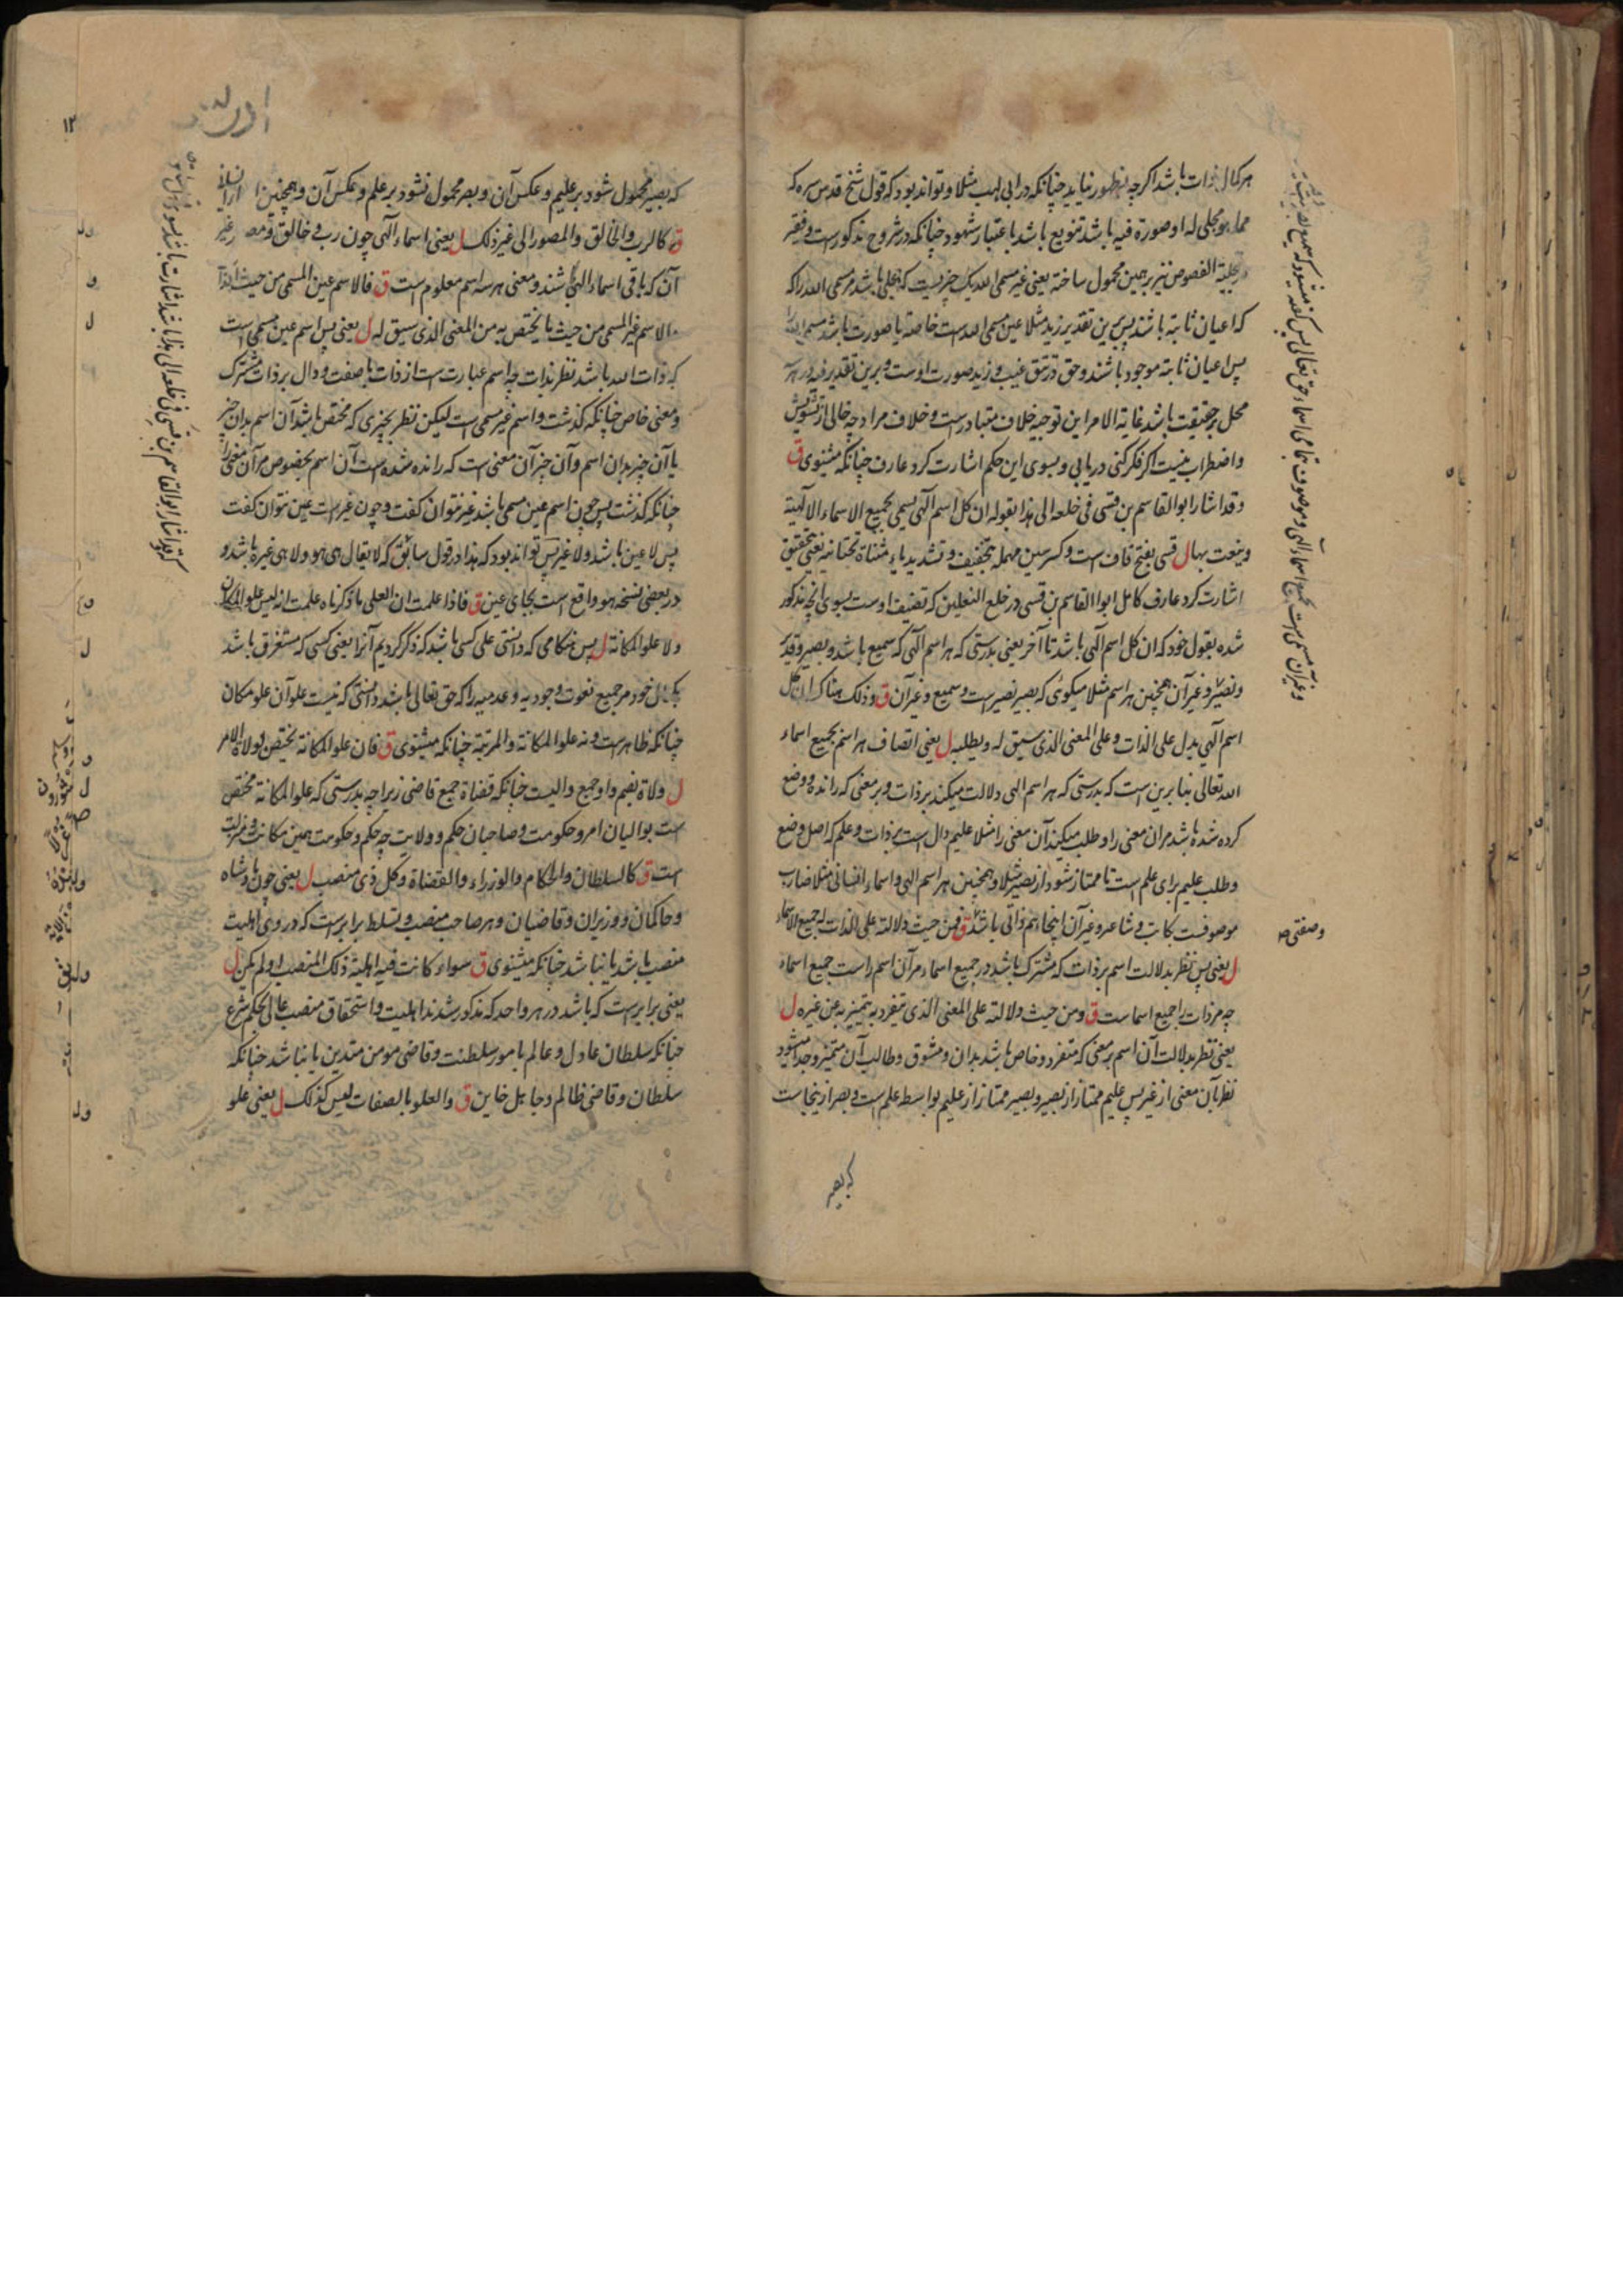 هر کمال ذات باشد اگرچه بظهور نیاید چنانکه در ابی لهب مثلا و تواند بود که قول شیخ قدس سره که
مما هو مجلی له او صورة فیه باشد تنویع باشد باعتبار شهود چنانکه در شروح مذکورست و فقیر
در تجلیة الفصوص نیز برهمین محمول ساخته یعنی غیر مسمی الله یک چیزیست که مجلی باشد مر مسمی الله را که
که اعیان ثابته باشند پس برین تقدیر زید مثلا عین مسمی الله است خاصة یا صورت باشد مسمی الله را
پس اعیان ثابته موجود باشند و حق در تتق غیب و زید صورت اوست و برین تقدیر فیه در هر
محل بر حقیقت باشد غایة الامر این توجیه خلاف متبادرست و خلاف مراد چه خالی از تشویش
و اضطراب نیست اگر فکر کنی دریابی و بسوی این حکم اشارت کرد عارف چنانکه میشنوی ق
وقد اشار ابو القاسم بن قسی فی خلعه الی هذا بقوله ان کل اسم الهی یسمی بجمیع الاسماء الالهیة
وینعت بها ل قسی بفتح قاف است و کسر سین مهمله بتخفیف و تشدید یاء مثناة تحتانیه یعنی بتحقیق
اشارت کرد عارف کامل ابوا القاسم بن قسی در خلع النعلین که تصنیف اوست بسوی انچه مذکور
شده بقول خود که ان کل اسم الهی باشد تا آخر یعنی بدرستی که هر اسم الهی که سمیع باشد و بصیر و قدیر
و نصیر و غیر آن همچنین هر اسم مثلا میگوئی که بصیر نصیر است و سمیع و غیر آن ق وذلک هناک ان کل
اسم الهی یدل علی الذات و علی المعنی الذی سیق له و یطلبه ل یعنی اتصاف هر اسم بجمیع اسماء
الله تعالی بنا برین است که بدرستی که هر اسم الهی دلالت میکند بر ذات و بر معنی که رانده و وضع
کرده شده باشد مر ان معنی را و طلب میکند آن معنی را مثلا علیم دال است بر ذات و علم که اصل وضع
و طلب علیم برای علم است تا ممتاز شود از بصیر مثلا و همچنین هر اسم الهی و اسماء انسانی مثلا ضارب
موصوفست کاتب و شاعر و غیر آن اینجا هم ذاتی باشد ق فمن حیث دلالته علی الذات له جمیع الاسماء
ل یعنی پس نظر بدلالت اسم بر ذات که مشترک باشد در جمیع اسماء مر آن اسم راست جمیع اسماء
چه مر ذات را جمیع اسماست ق و من حیث دلالته علی المعنی الذی ینفرد به یتمیز به عن غیره ل
یعنی نظر بدلالت آن اسم بر معنی که متفرد و خاص باشد بدان و مشوق و طالب آن متمیز و جدا میشود
نظر بآن معنی از غیر پس علیم ممتاز از بصیر و بصیر ممتاز از علیم بواسط علم است و بصر ازینجاست
که بصیر
وصفتی
اول
۱۲
که بصیر محمول شود بر علیم و عکس آن و بصر محمول نشود بر علم و عکس آن و همچنین
ق کالرب والخالق والمصور الی غیر ذلک ل یعنی اسماء الهی چون رب و خالق و
آن که باقی اسماء الهی باشند و معنی هر سه اسم معلوم است ق فالاسم عین المسمی من حیث الذات
والاسم غیر المسمی من حیث ما یختص به من المعنی الذی سیق له ل یعنی پس اسم عین مسمی است
که ذات الله باشد نظر بذات چه اسم عبارت است از ذات با صفت و دال بر ذات مشترک
و معنی خاص چنانکه گذشت و اسم غیر مسمی است لیکن نظر بچیزی که مختص باشد آن اسم بدان چیز
یا آن چیز بدان اسم و آن چیز آن معنی است که رانده شده است آن اسم بخصوص مر آن معنی را
چنانکه گذشت پس چون اسم عین مسمی باشد غیر نتوان گفت و چون غیر است عین نتوان گفت
پس لا عین باشد ولا غیر پس تواند بود که هذا در قول سابق که لا یقال هی هو ولا هی غیره باشد و
در بعضی نسخه هو واقع است بجای عین ق فاذا علمت ان العلی ما ذکرناه علمت انه لیس علو المکان
ولا علو المکانة ل پس هنگامی که دانستی علی کسی باشد که ذکر کردیم آنرا یعنی کسی که مستغرق باشد
خود مر جمیع نعوت وجودیه و عدمیه را که حق تعالی باشد دانستی که نیست علو آن علو مکان
چنانکه ظاهرست و نه علو المکانة والمرتبة چنانکه میشنوی ق فان علو المکانة یختص بولاة الامر
ل ولاة بضم واو جمع والیست چنانکه قضاة جمع قاضی زیرا چه بدرستی که علو المکانة مختص
است بوالیان امر و حکومت و صاحبان حکم و ولایت چه حکم و حکومت همین مکانت و مرتبت
است ق کالسلطان والحکام والوزراء والقضاة و کل ذی منصب ل یعنی چون پادشاه
و حاکمان و وزیران و قاضیان و هر صاحب منصب و تسلط برابرست که در وی اهلیت
منصب باشد یا نباشد چنانکه میشنوی ق سواء کانت فیه اهلیة ذلک المنصب او لم یکن ل
یعنی برابرست که باشد در هر واحد که مذکور شدند اهلیت و استحقاق منصب عالی بحکم شرع
چنانکه سلطان عادل و عالم بامور سلطنت و قاضی مومن متدین یا نباشد چنانکه
سلطان و قاضی ظالم و جاهل خاین ق والعلو بالصفات لیس کذلک ل یعنی علو